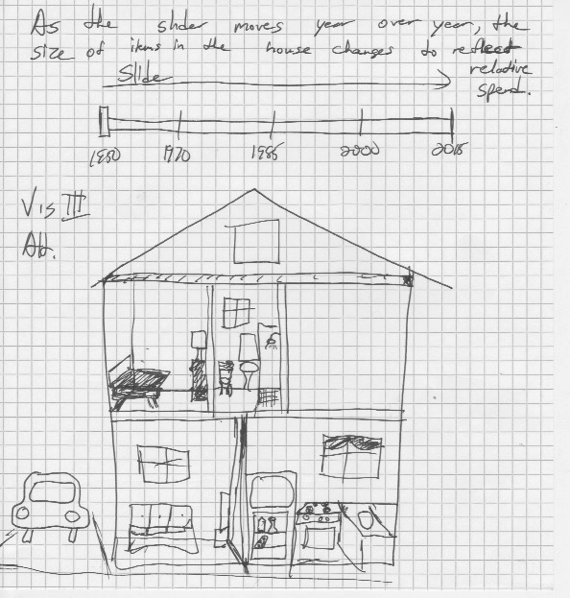 As the slider moves year over year, the
size of items in the house changes to reflect
relative
spend.
Slider
1950 1970 1985 2000 2015
Vis III
Alt.